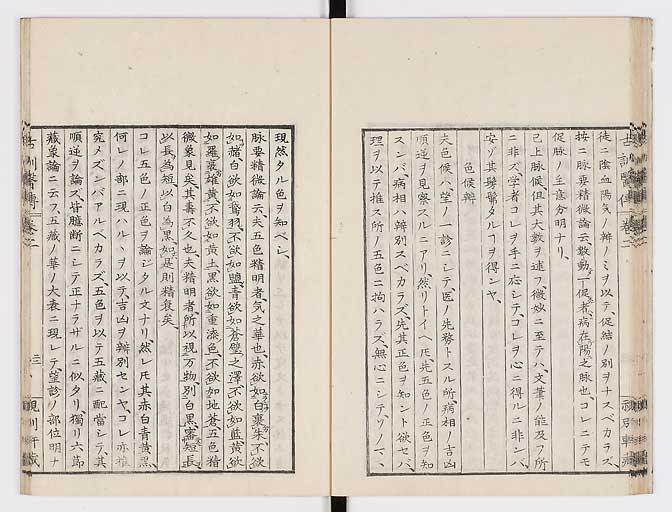 徒ニ陰血陽気ノ辨ノミヲ以テ、促結ノ別ヲナスベカラズ
按ニ脉要精微論云数動一促者、病在陽之脉也、コレニテモ
促脉ノ主意分明ナリ、
已上脉候但其大数ヲ述フ微妙ニ至テハ、文筆ノ能及フ所
ニ非ズ、学者コレヲ手ニ応シテ、コレヲ心ニ得ルニ非ンバ、
安ゾ其髣髴タルヿヲ得ンヤ、
色候辨
夫色候ハ、望ノ一診ニシテ、医ノ先務トスル所、病相ノ吉凶
順逆ヲ見察スルニアリ、然リトイヘ𪜈先五色ノ正色ヲ知
ズンバ、病相ハ辨別スベカラズ、先其正色ヲ知ント欲セバ、
理ヲ以テ推ス所ノ五色ニ拘ハラズ、無心ニシテ、ソノマヽ
現然タル色ヲ知ベシ、
脉要精微論云夫五色精明者、気之華也、赤欲如白裹朱、不欲
如赭、白欲如鵞羽、不欲如塩、青欲如蒼璧之澤、不欲如藍、黄欲
如羅裹雄黄、不欲如黄土、黒欲如重漆色、不欲如地蒼、五色精
微象見矣、其壽不久也、夫精明者、所以視万物別白黒、審短長、
以長為短、以白為黒、如是則精衰矣、
コレ五色ノ正色ヲ論ジタル文ナリ然レ𪜈其赤白青黄黒、
何レノ部ニ現ハルヽヲ以テ、吉凶ヲ辨別センヤ、コレ亦推
究メズンバアルベカラズ、五色ヲ以テ五蔵ニ配當シテ、其
順逆ヲ論ズ、臆断ニシテ正ナラザルニ似タリ、獨リ六節
蔵象論ニ云フ、五蔵ノ華ノ大表ニ現レテ、望診ノ部位明ナ